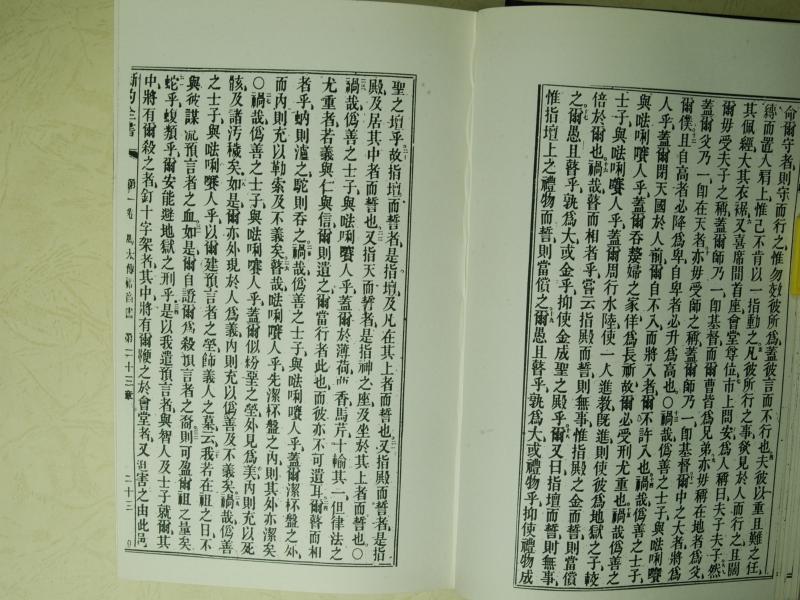 命爾守者則守而行之惟勿效彼所爲蓋彼言而不行也夫彼以重且難之任
縛而置人肩上惟己不肯以一指動之凡彼所行之事欲見於人而行之且闊
其佩經大其衣襚又喜席間首座會堂尊位市上問安爲人稱曰夫子夫子然
爾毋受夫子之稱蓋爾師乃一卽基督而爾曹皆爲兄弟亦毋稱在地者爲父
蓋爾父乃一卽在天者亦毋受師之稱蓋爾師乃一卽基督爾中之大者將爲
爾僕且自高者必降爲卑自卑者必升爲高也〇禍哉僞善之士子與𠵽唎㘔
人乎蓋爾閉天國於人前爾自不入而將入者爾不許入也禍哉僞善之士子
與𠵽唎㘔人乎蓋爾吞嫠婦之家佯爲長祈故爾必受刑尤重也禍哉僞善之
士子與𠵽唎㘔人乎蓋爾周行水陸使一人進教旣進則使彼爲地獄之子較
倍於爾也禍哉瞽而相者乎嘗云指殿而誓則無事惟指殿之金而誓則當償
之爾愚且瞽乎孰爲大或金乎抑使金成聖之殿乎爾又曰指壇而誓則無事
惟指壇上之禮物而誓則當償之爾愚且瞽乎孰爲大或禮物乎抑使禮物成
聖之壇乎故指壇而誓者是指壇及凡在其上者而誓也又指殿而誓者是指
殿及居其中者而誓也又指天而誓者是指神之座及坐於其上者而誓也〇
禍哉僞善之士子與𠵽唎㘔人乎蓋爾於薄荷茴香馬芹十輸其一但律法之
尤重者若義與仁與信爾則遺之爾當行者此也而彼亦不可遺耳爾瞽而相
者乎蚋則濾之駝則吞之禍哉僞善之士子與𠵽唎㘔人乎蓋爾潔杯盤之外
而內則充以勒索及不義矣瞽哉𠵽唎㘔人乎先潔杯盤之內則其外亦潔矣
〇禍哉僞善之士子與𠵽唎㘔人乎蓋爾似粉堊之塋外見爲美內則充以死
骸及諸汚穢矣如是爾亦外現於人爲義內則充以僞善及不義矣禍哉僞善
之士子與𠵽唎㘔人乎以爾建預言者之塋飾義人之墓云我若在祖之日不
與彼謀流預言者之血如是爾自證爾爲殺預言者之裔則可盈爾祖之量矣
蛇乎蝮類乎爾安能避地獄之刑乎是以我遣預言者與智人及士子就爾其
中將有爾殺之者釘十字架者其中將有爾鞭之於會堂者又迫害之由此邑
新約全書 第一卷 馬太傳福音書 第二十三章 二十三